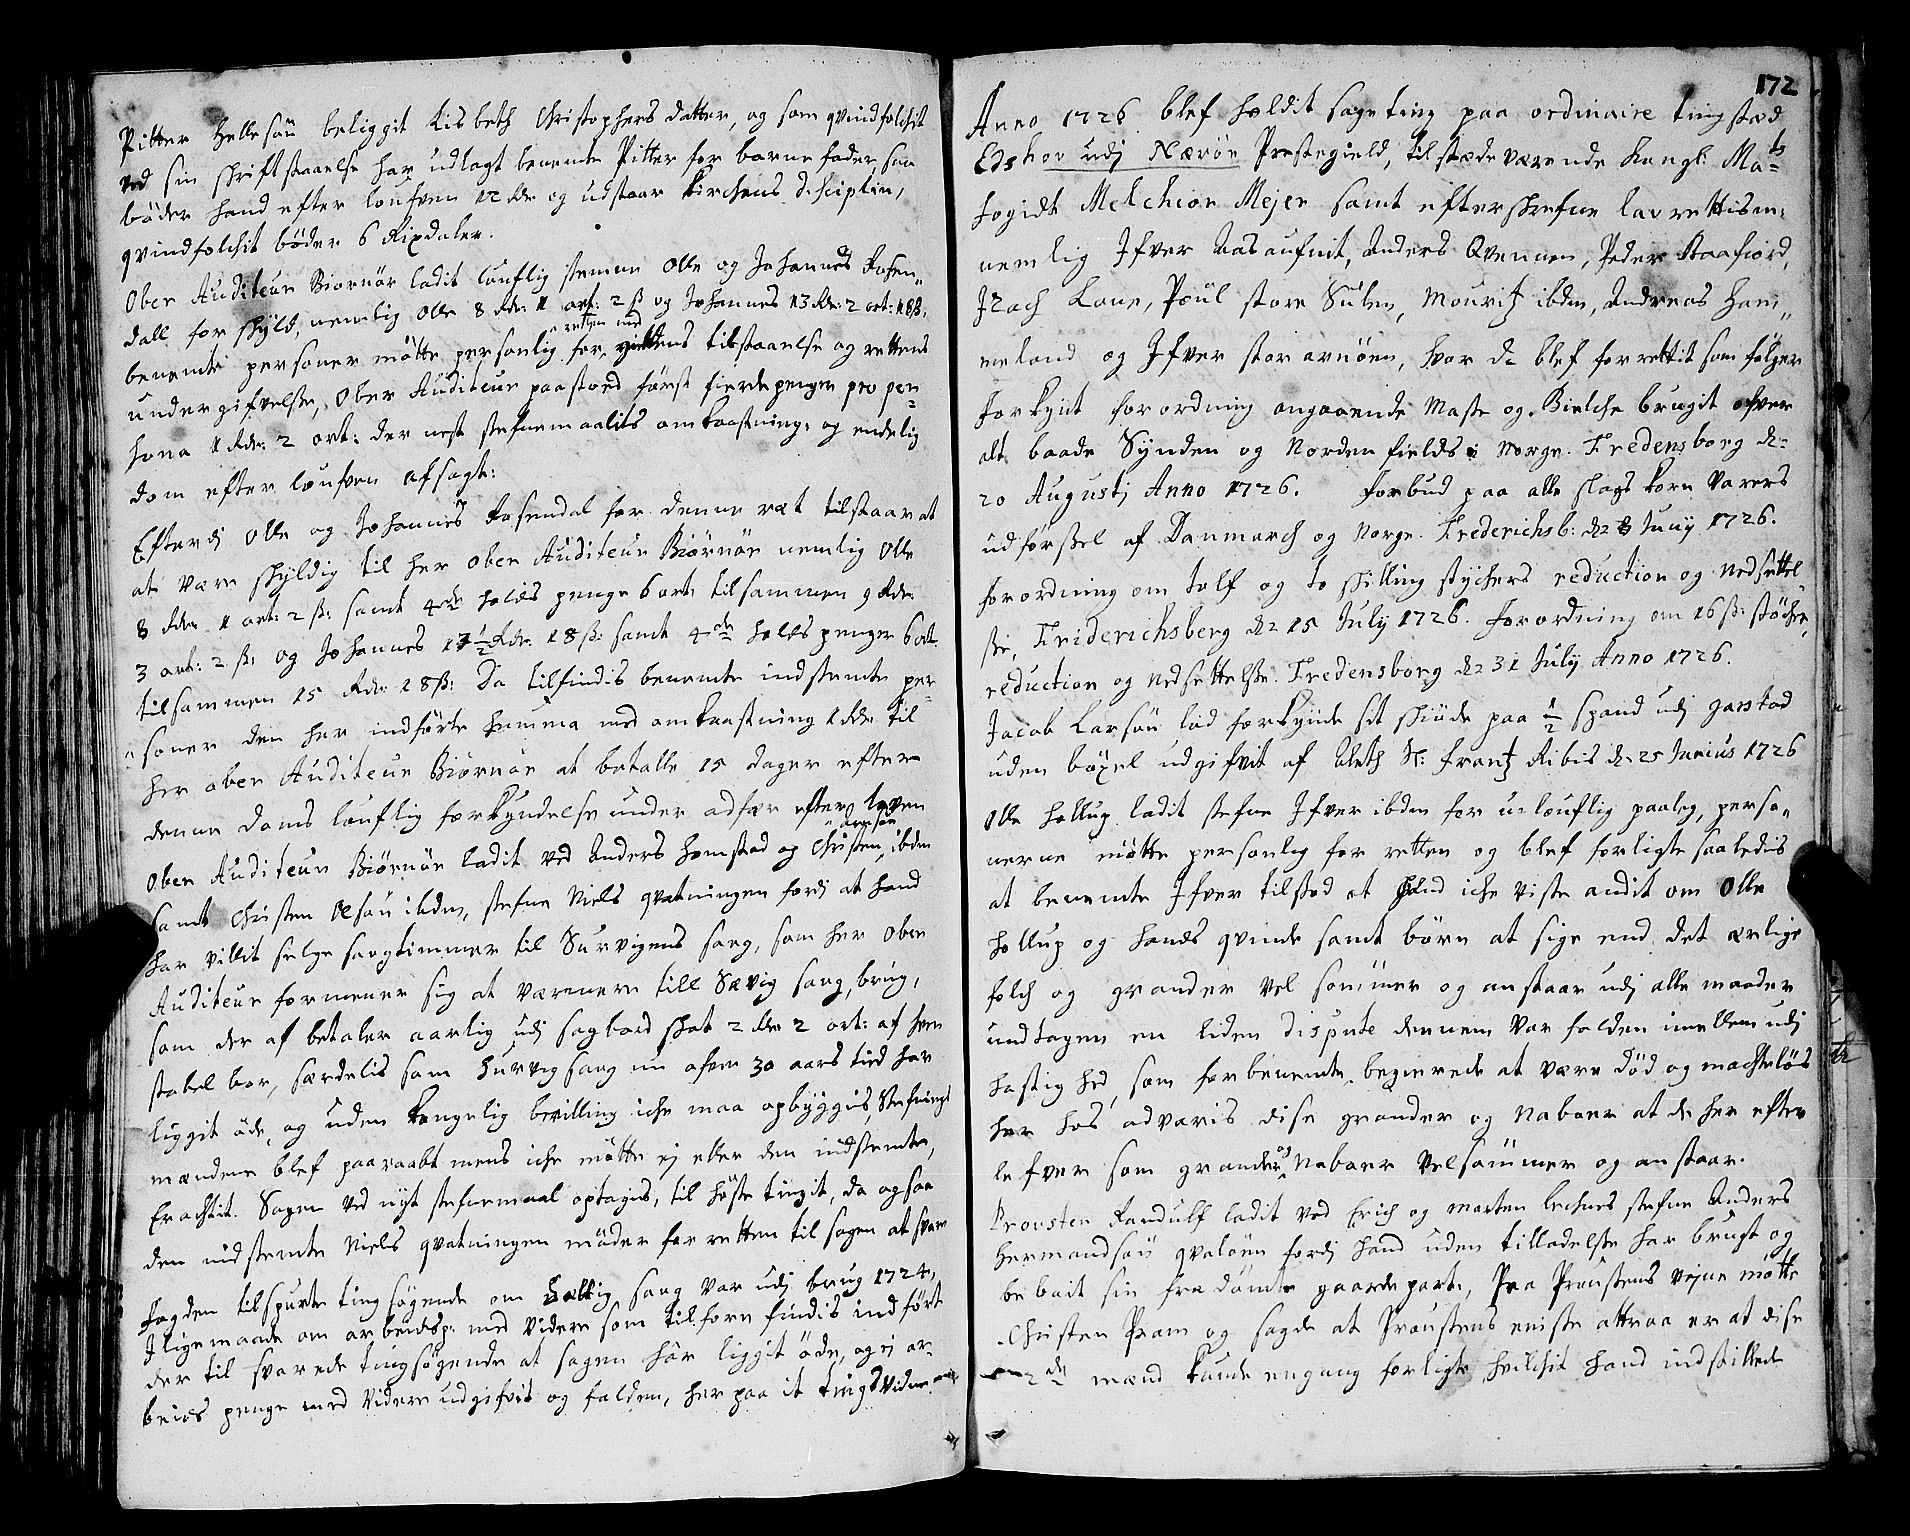 Pitter Hellesøn beliggit Lisbeth Christophers datter, og som qvindfolchit
ved sin skriftstaaelse har udlagt benemte Pitter for barne fader, saa
bøder hand efter loufven 12 Rdr og udstaar Kirchens Disciplin,
qvindfolchit bøder 6 Rixdaler.
Ober Auditeur Biørnør ladit louflig stemme Olle og Johannes Rosen„
dall for skyld, nemlig Olle 8 Rdr: 1 ort: 2 ß og Johannes 13 Rdr: 2 ort: 18 ß:
benemte personer møtte personlig for retten med tilstaaelse og rettens
undergifvelse, Ober Auditeur paastoed først fierde penger pro per=
sona 1 Rdr: 2 ort: der nest stefnemaalits omkaastning, og endelig
dom efter loufven afsagt:
Efterdj Olle og Johannes Rosendal for denne ræt tilstaar at
at være skyldig til her Ober Auditeur Biørnør nemlig Olle
8 Rdr 1 ort: 2 ß: samt 4de holds penge 6 ort: tilsammen 9 Rdr:
3 ort: 2 ß: og Johannes 13 1/2 Rdr: 18 ß: samt 4de holds penger 6 ort
tilsammen 15 Rdr: 18 ß: Da tilfindis benemte indstemte per=
„soner den her indførte summa med omkaastning 1 Rdr til
her ober Auditeur Biørnør at betalle 15 dager efter
denne Doms louflig forkyndelse under adfær efter loven
Ober Auditeur Biørnør ladit ved Anders Homstad og Christen ibdm
samt Christen Olsøn ibdm, stefne Niels qvatningen fordj at hand
har villit selge saugtimmer til Survigens saug, som her Ober
Auditeur formener sig at være nere till Sævig saug, brug,
som der af betaler aarlig udj sagbord skat 2 Rdr 2 ort: af hen
stabel bor, særdelis som Surviig saug nu ofver 30 aars tid har
liggit øde, og uden Kongelig bevilling iche maa opbyggis, Stefnings
mændene blef paaraabt mens iche møtte ej eller den indstemte,
Erachtit. Sagen ved nyt stefnemaal optagis, til høste tingit, da ogsaa
den indstemte Niels qvatningen møder for retten til sagen at svare
Fogden tilspurte tingsøgende om Sættig saug var udj brug 1724,
Jligemaade om arbeidsp: med videre som tilforn findis indført
der til svarede tingsøgende at sagen hår liggit øde, og ej ar„
beids penge med videre udgifvit og falden, her paa it tingsvidne
172
Anno 1726 blef holdit sageting paa ordinaire tingsted
Edshou udj Nærøe Prestegield, tilstædeværende Kongl: Mats
fogidt Melchior Mejer samt efterskrefne lavrettism:
nemlig Jfver Aasaufnit, Anders Qvennen, Peder Staafiord,
Jsach Laue, Poul store Sulen, Mouritz ibdm, Andreas Ham„
meland og Jfver storarnøen, hvor da blef forrettit som følger
Forkynt forordning angaaende Maste og Bielche brugit ofver
alt baade Synden og Norden fields i Norge. Fredensborg d=
20 Augustj Anno 1726. Forbud paa alle slags korn varers
udførssel af Danmarch og Norge. Frederichsb: d= 8 Junij 1726.
forordning om tolf og to skilling stychers reduction og nedsettel=
sse, Friderichsberg d= 15 July 1726. Forordning om 16 ß: støcher,
reduction og nedsettelsse. Fredensborg d= 31 July Anno 1726.
Jacob Larsøn lod forkynde sit skiøde paa 1/2 spand udj garstad
uden bøxel udgifvit af Aleth Sl: Frantz Ribis d. 25 Junius 1726
Olle Hollup ladit stefne Jfver ibdm for u-louflig paaleg, perso„
nerne møtte personlig for retten og blef forligte saaledis
at benemte Jfver tilstod at hand iche viste andit om Olle
Hollup og hands qvinde samt børn at sige end det ærlige
folch og grander vel sømmer og anstaar udj alle maader
undtagen en liden dispute dennem var falden imellem udj
hastighed, som forbenemte begierede at være død og machteløs
her hos advaris disse grander og Naboer at de her efter
lefver som grander og Naboer velsømmer og anstaar.
Prousten Randulf ladit ved Erich og Morten Leches stefne Anders
Hermandsøn qvaløen fordj hand uden tilladelsse har brugt og
beboit sin fradømte gaardepart, Paa Proustens vegne møtte
Christen Pram og sagde at Proustens eniste attraa er at disse
2de mænd kunde engang forligte hvilchit hand indstillede